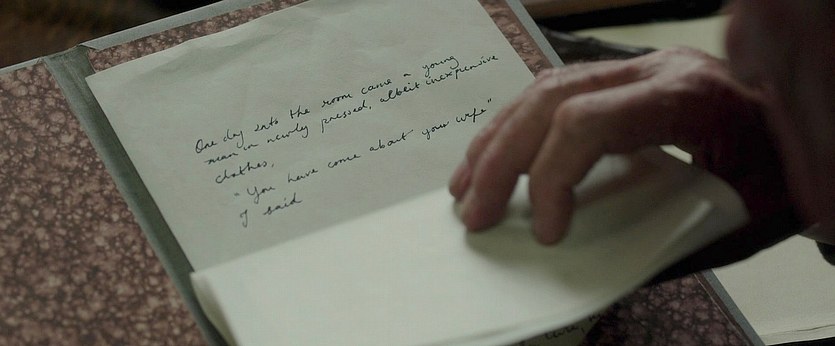 One day into the room came a young
man in newly pressed, albeit inexpensive
clothes,
"You have come about your wife"
I said